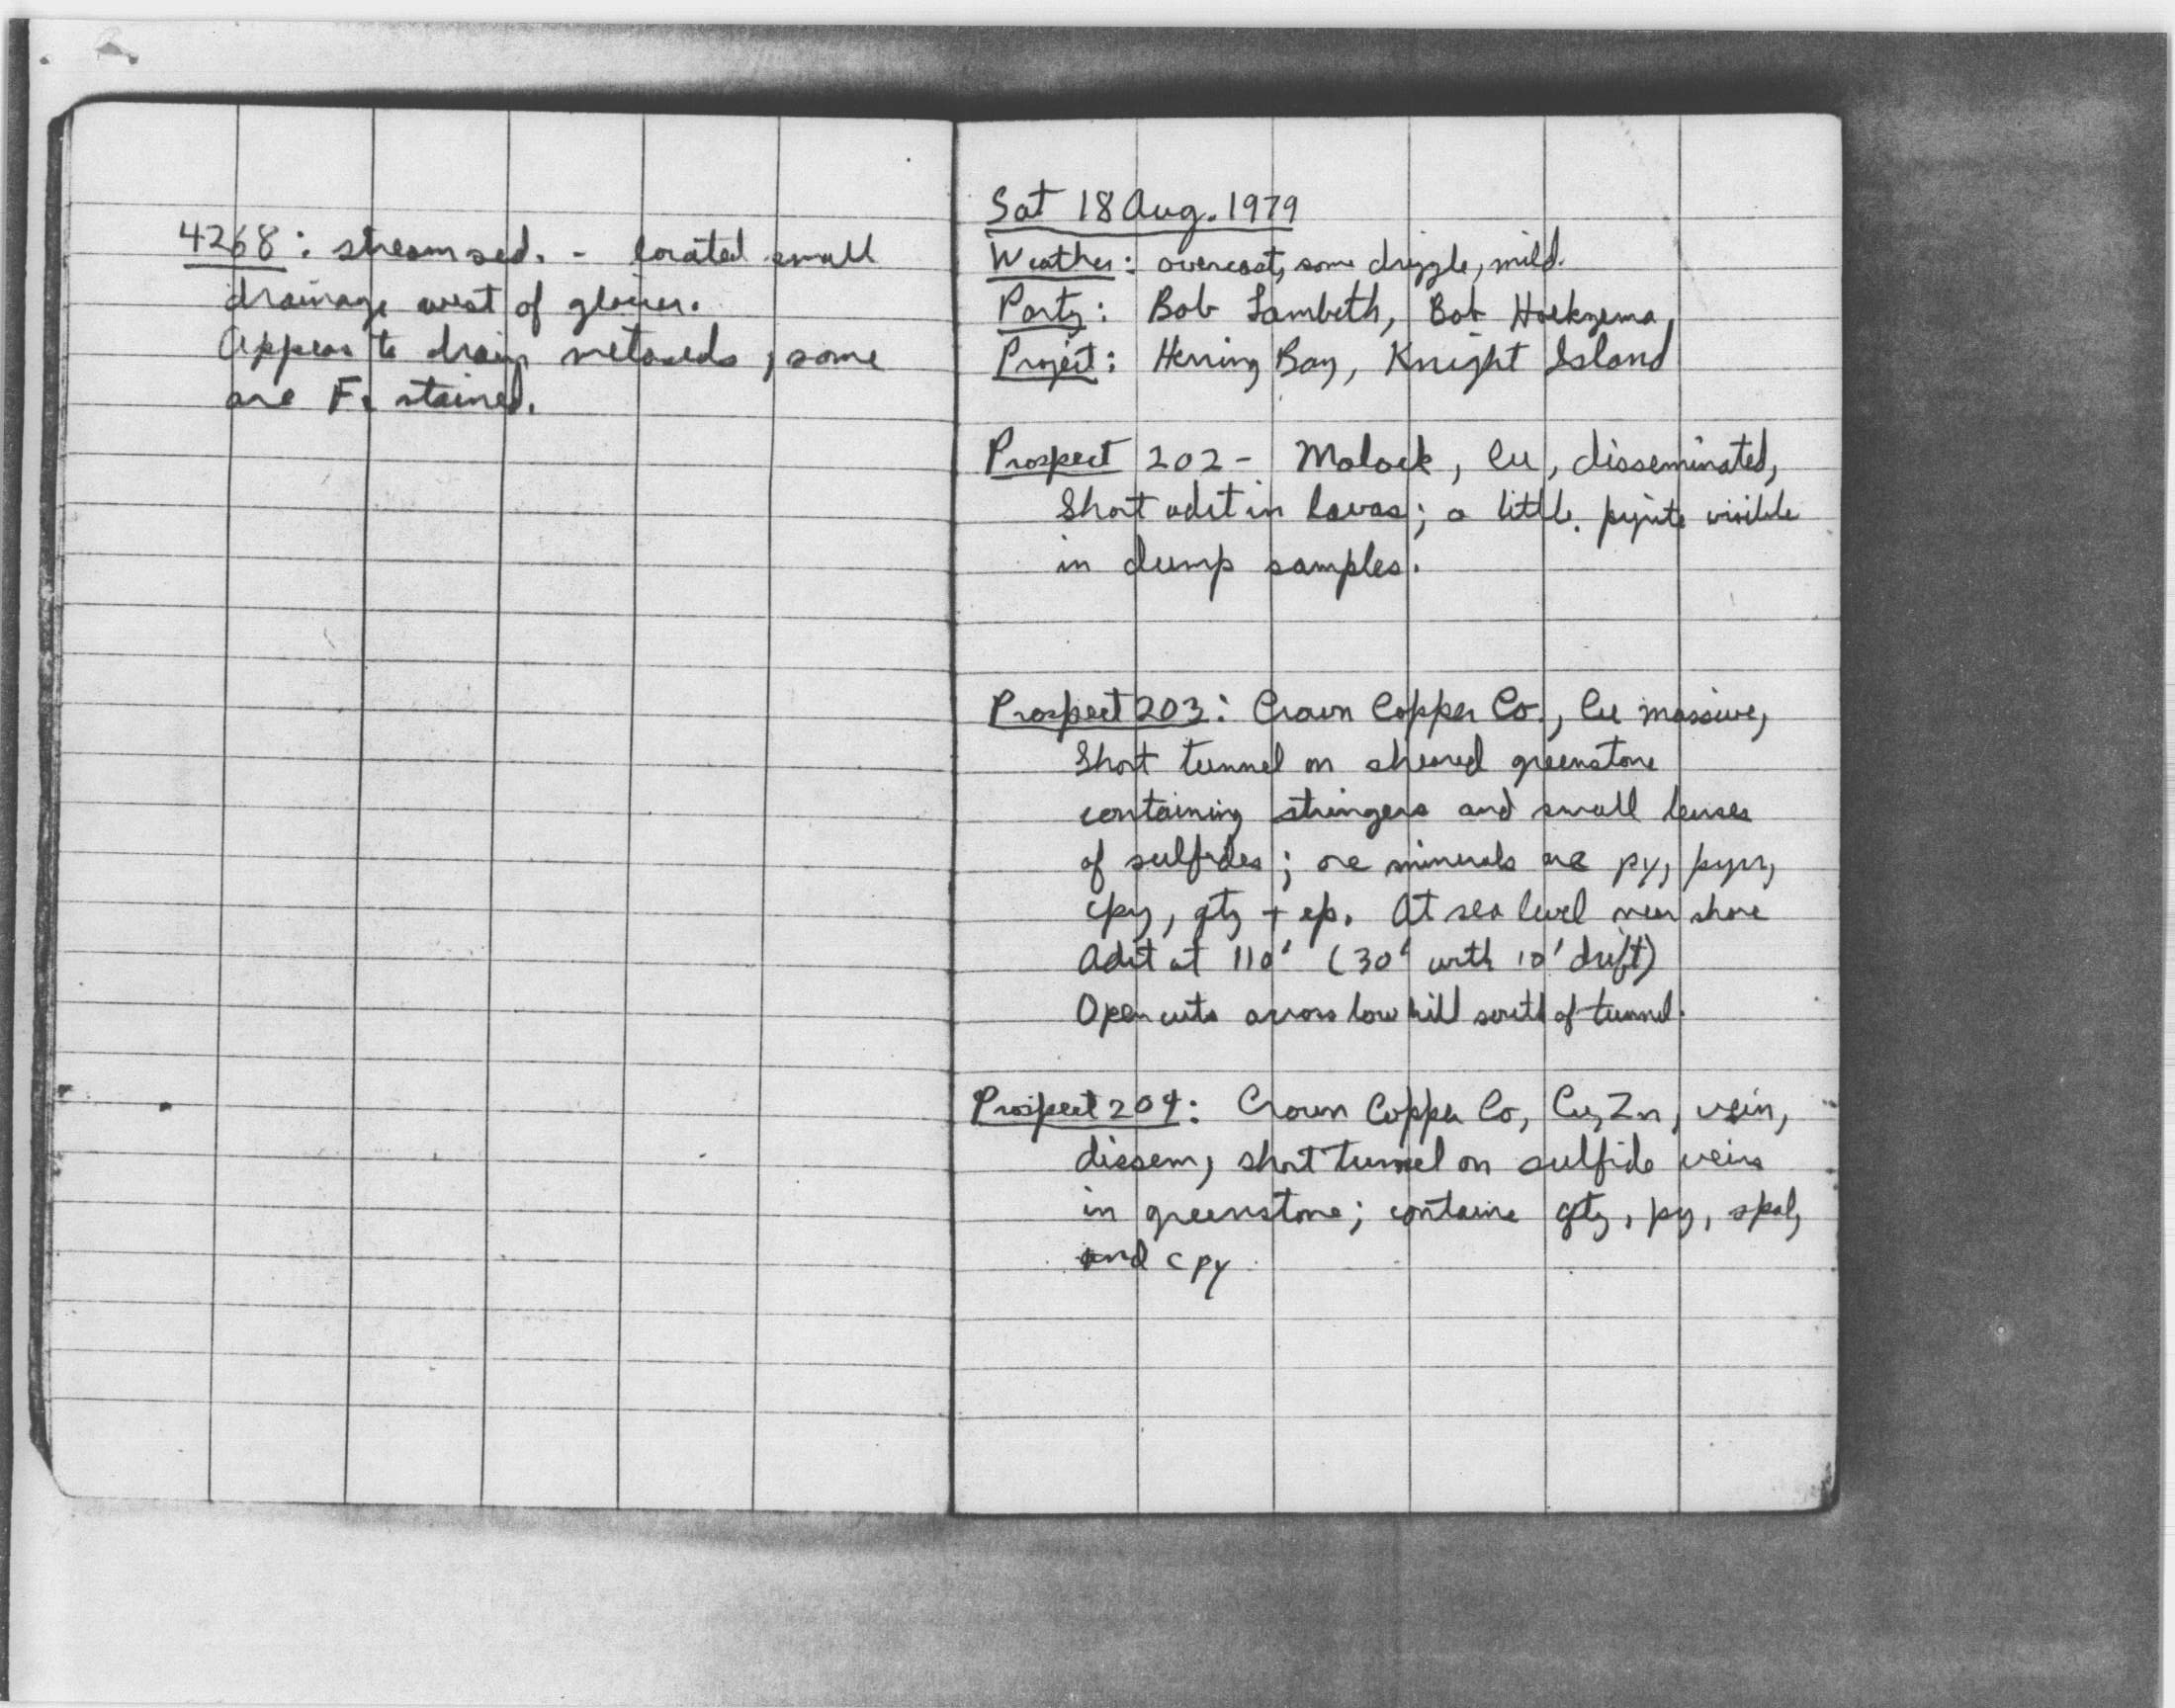 4268: stream sed. - located small
drainage west of glacier.
Appears to drain metaseds, some
are Fe stained.
Sat 18 Aug. 1979
Weather: overcast, some drizzle, mild.
Party: Bob Lambeth, Bob Hoekzema,
Project: Herring Bay, Knight Island
Prospect 202 - Malack, Cu, disseminated,
Short adit in lavas; a little pyrite visible
in dump samples.
Prospect 203: Crown Copper Co., Cu massive,
Short tunnel on sheared greenstone
containing stringers and small lenses
of sulfides; ore minerals are py, pyrr,
cpy, qtz + ep. At sea level near shore
Adit at 110' (30' with 10' drift)
Open cuts across low hill south of tunnel.
Prospect 204: Crown Copper Co, Cu, Zn, vein,
dissem, short tunnel on sulfide veins
in greenstone; contains qtz, py, spal,
and cpy